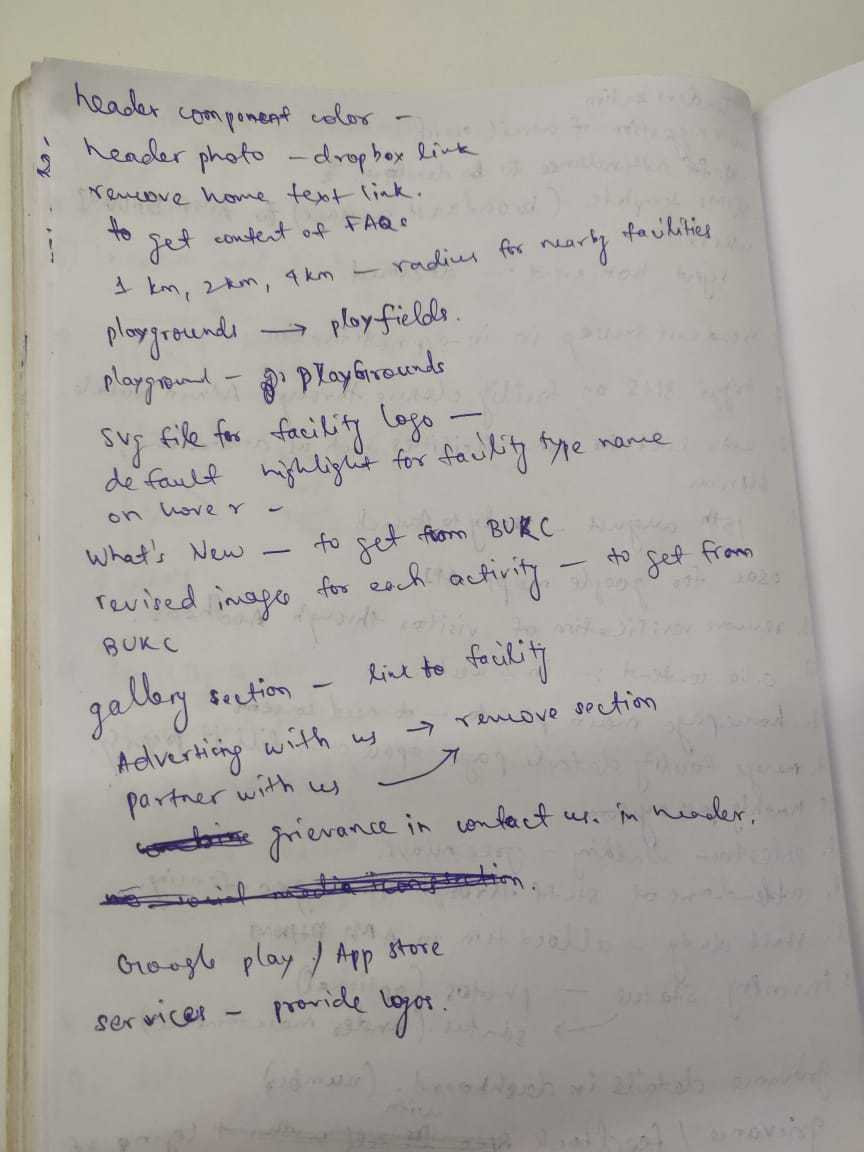 header component color -
header photo - dropbox link
remove home text link.
to get content of FAQs
1 km, 2km, 4km - radius for nearby facilities
playgrounds → playfields.
playground - PlayGrounds
svg file for facility logo -
default highlight for facility type name
on hover -
What's New - to get from BUKC
revised images for each activity - to get from
BUKC
gallery section - link to facility
Adverticing with us → remove section
partner with us
grievance in contact us. in header.
Google play / App store
services - provide logos.